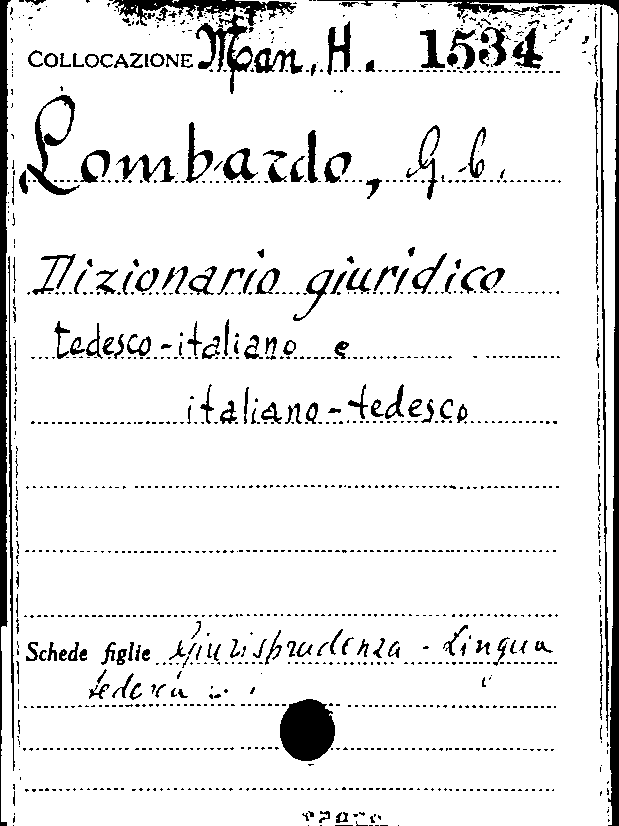 COLLOCAZIONE Man. H. 1534
Lombardo, G. C.
Dizionario giuridico
tedesco-italiano e
italiano-tedesco
Schede figlie Giurisprudenza - Lingua
tedesca